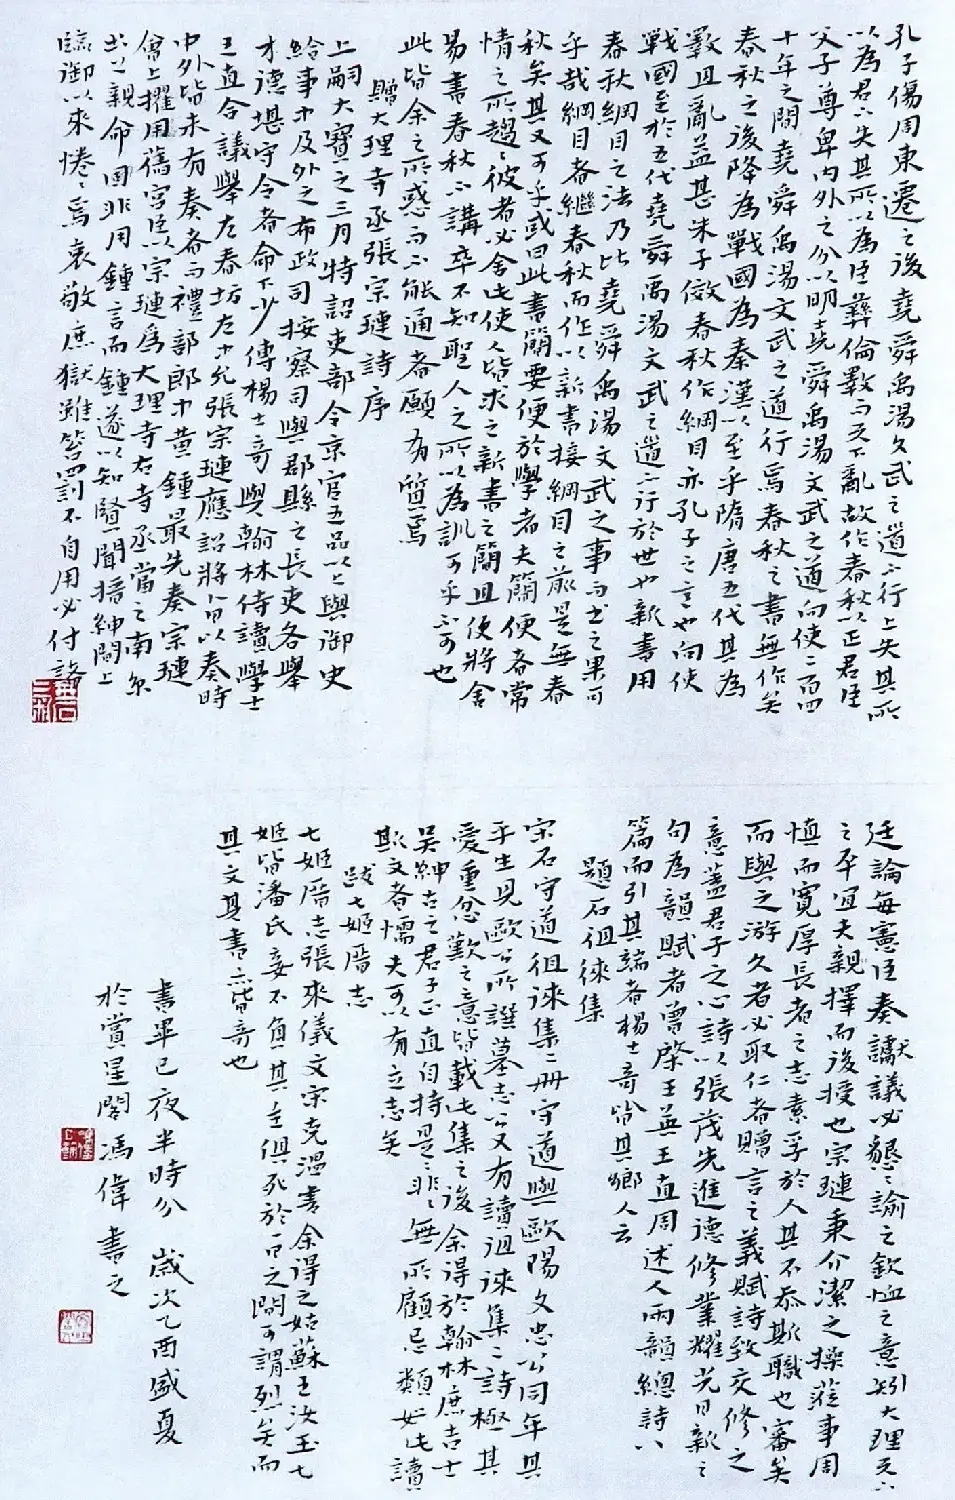 孔子傷周東遷之後堯舜禹湯文武之道不行上失其所
以為君下失其所以為臣彝倫斁而天下亂故作春秋以正君臣
父子尊卑內外之分以明堯舜禹湯文武之道向使二百四
十年之間堯舜禹湯文武之道行焉春秋之書無作矣
春秋之後降為戰國為秦漢以至乎隋唐五代其為
斁且亂益甚朱子傚春秋作綱目亦孔子之意也向使
戰國至於五代堯舜禹湯文武之道不行於世也新書用
春秋綱目之法乃比堯舜禹湯文武之事而書之果可
乎哉綱目者繼春秋而作以新書接綱目之前是無春
秋矣其又可乎或曰此書簡要便於學者夫簡便者常
情之所趨趨彼者必舍此使人皆求之新書之簡且便將舍
易書春秋不講卒不知聖人之所以為訓可乎不可也
此皆余之所惑而不能通者願為質焉
贈大理寺丞張宗璉詩序
上嗣大寶之三月特詔吏部令京官五品以上與御史
給事中及外之布政司按察司與郡縣之長吏各舉
才德堪守令者命下少傅楊士奇與翰林侍讀學士
王直合議舉左春坊左中允張宗璉應詔將以奏時
中外皆未有奏者而禮部郎中黃鍾最先奏宗璉
會上擢用舊宮臣以宗璉為大理寺右寺丞當之南京
出上親命固非用鍾言而鍾遂以知賢聞搢紳間上
臨御以來惓惓焉哀敬庶獄雖笞罰不自用必付諸
廷論每憲臣奏讞議必懇懇諭之欽恤之意矧大理天下
之平宜夫親擇而後授也宗璉秉介潔之操蒞事周
慎而寬厚長者之志素孚於人其不忝斯職也審矣
而與之游久者必取仁者贈言之義賦詩致交修之
意蓋君子之心詩以張茂先進德修業耀光日新之
句為韻賦者曾棨王英王直周述人兩韻總詩八
篇而引其端者楊士奇皆其鄉人云
題石徂徠集
宋石守道徂徠集二冊守道與歐陽文忠公同年其
平生見歐公所譔墓志公又有讀徂徠集二詩極其
愛重忿歎之意皆載此集之後余得於翰林庶吉士
吳紳古之君子正直自持是是非非無所顧忌類如此讀
斯文者懦夫可以有立志矣
跋七姬厝志
七姬厝志張來儀文宋克溫書余得之姑蘇王汝玉七
姬皆潘氏妾不負其主俱死於一日之間可謂烈矣而
其文其書亦皆奇也
書畢已夜半時分 歲次乙酉盛夏
於賞星閣馮偉書之